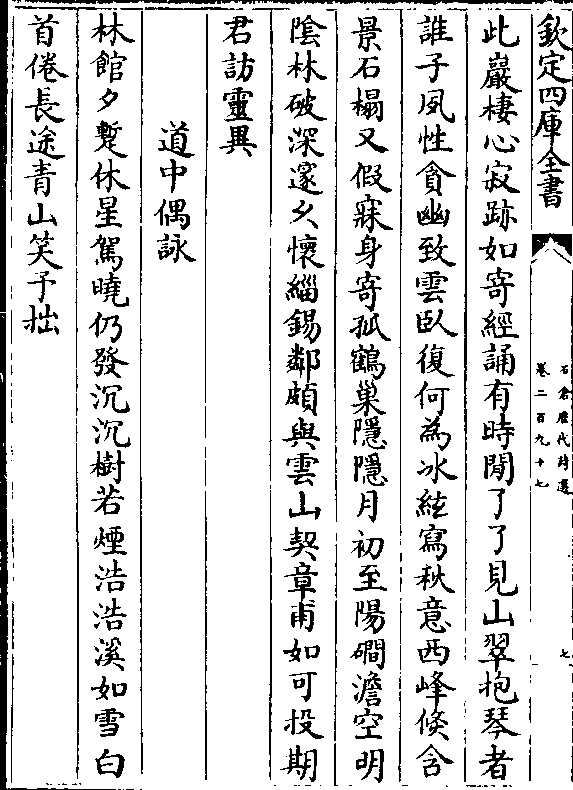 欽定四庫全書
石倉歷代詩選
卷二百九十七
七
此巖棲心寂跡如寄經誦有時閒了了見山翠抱琴者
誰子夙性貪幽致雲臥復何為冰絃寫秋意西峰倐含
景石榻又假寐身寄孤鶴巢隱隱月初至陽磵澹空明
陰林破深邃久懷緇錫鄰頗與雲山契章甫如可投期
君訪靈異
道中偶詠
林館夕蹔休星駕曉仍發沉沉樹若煙浩浩溪如雪白
首倦長途青山笑予拙